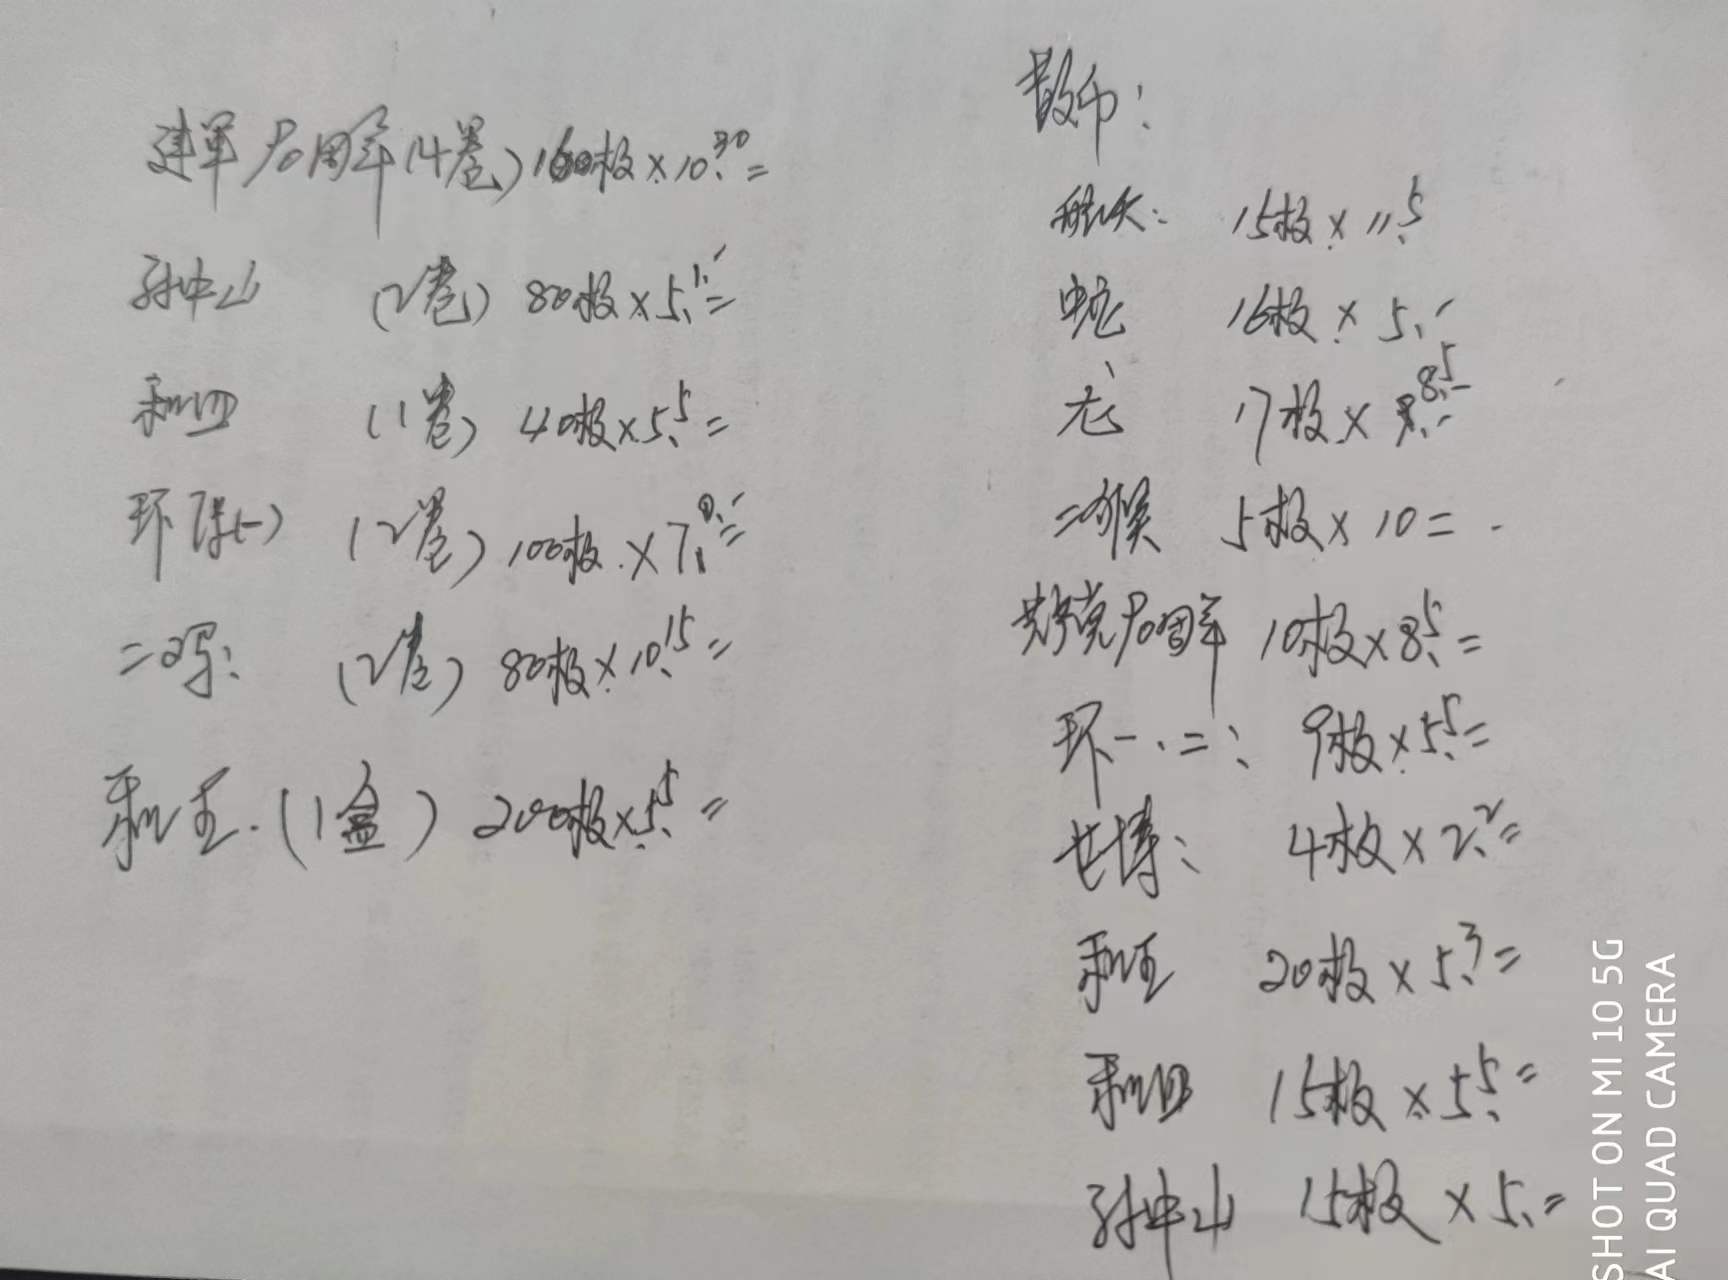 建军90周年(4卷)160枚×10.30=
孙中山 (2卷) 80枚×5.1=
和四 (1卷) 40枚×5.5=
环保(一) (2卷) 100枚×7.
二鸡: (2卷) 80枚×10.15=
和五.(1盒) 200枚×5.5=
散币:
航天: 15枚×11.5
蛇 16枚×5.-
龙 17枚×8.5-
二猴 5枚×10=
抗克70周年 10枚×8.5=
环一.二: 9枚×5.5=
世博: 4枚×2.2=
和五 20枚×5.3=
和四 15枚×5.5=
孙中山 15枚×5.=
SHOT ON MI 10 5G
AI QUAD CAMERA